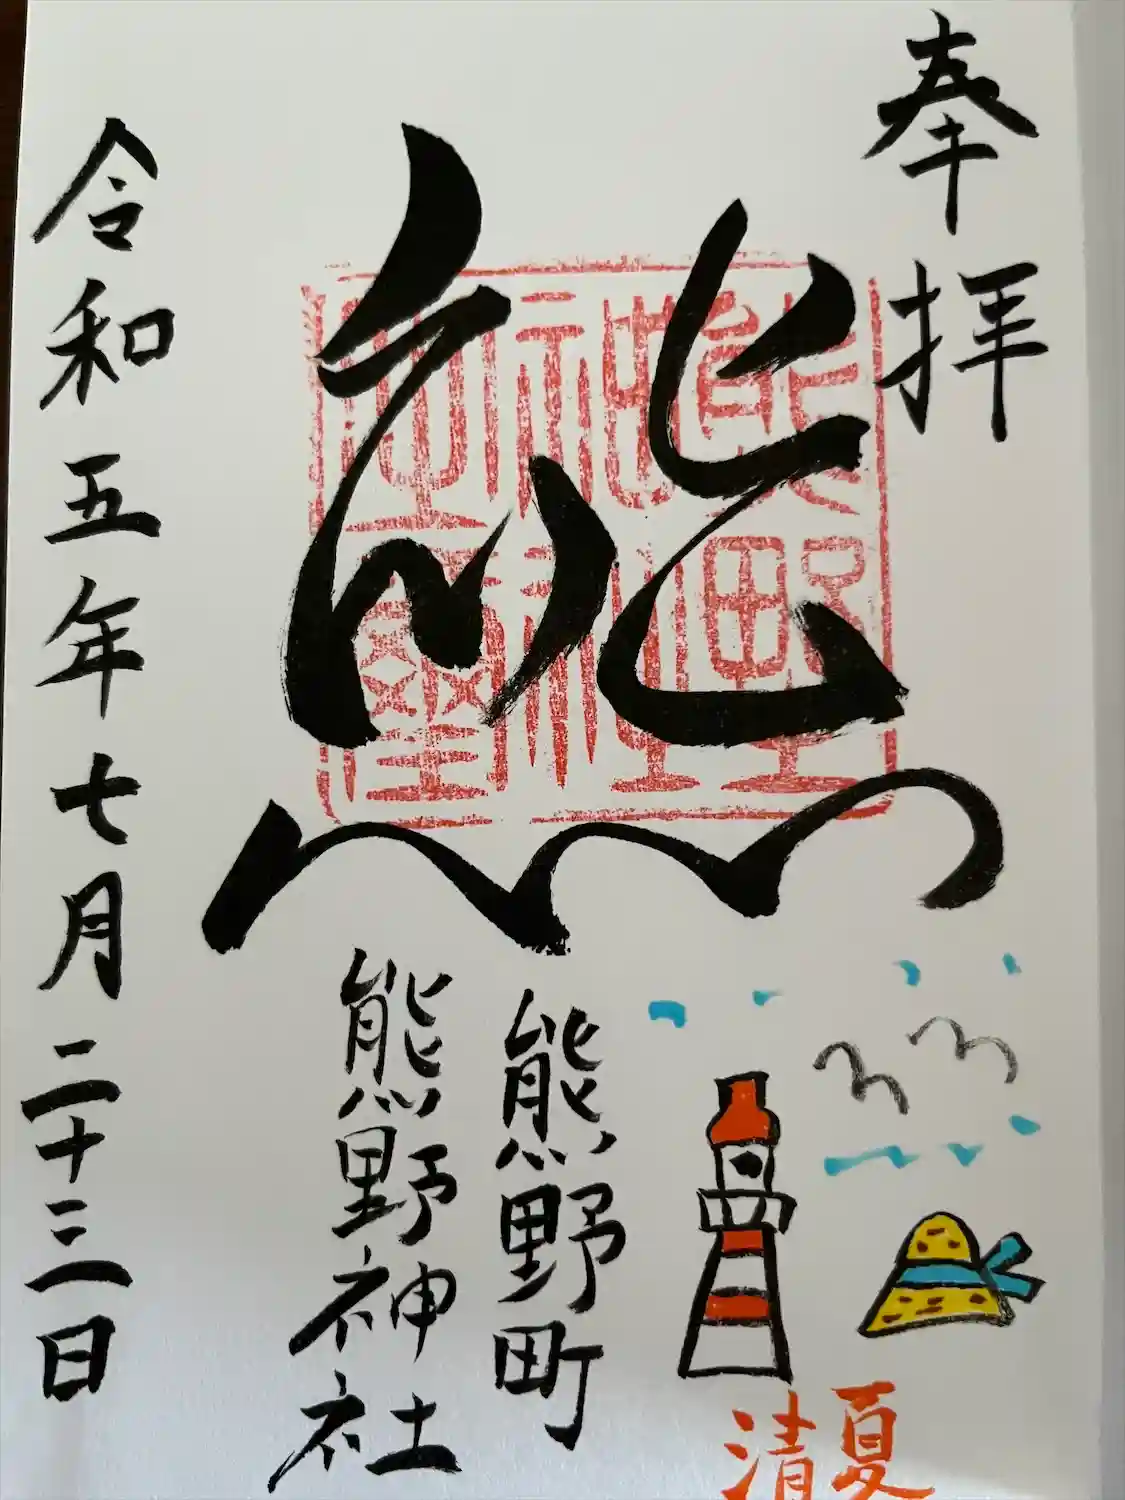 奉拝
熊
熊野神社之璽
夏
清
熊野町
熊野神社
令和五年七月二十三日